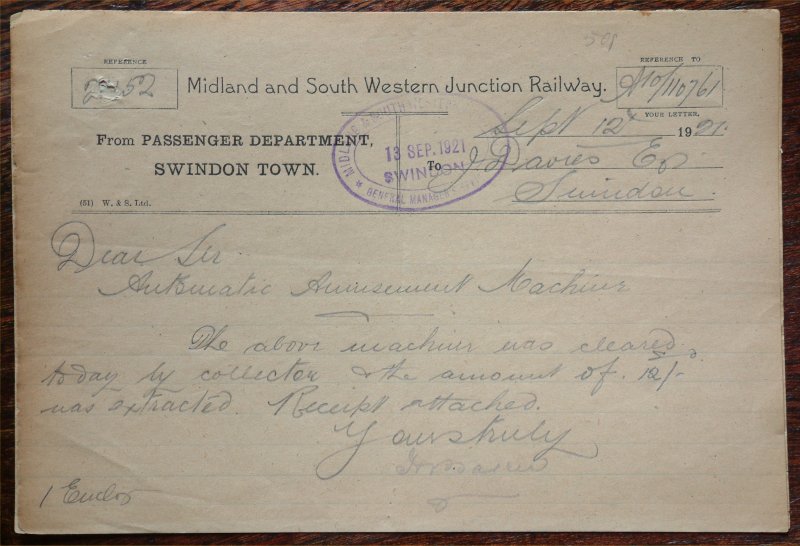 REFERENCE
REFERENCE TO
Midland and South Western Junction Railway.
A10/110761
YOUR LETTER.
Sept 12th 1921.
From PASSENGER DEPARTMENT,
SWINDON TOWN.
To J. Davies Esq
Swindon
13 SEP. 1921
SWINDON
GENERAL MANAGER'S
(51) W. & S. Ltd.
Dear Sir
Automatic Amusement Machine
The above machine was cleared
today by collector & the amount of 12/-
was extracted. Receipt attached.
Yours truly
1 Enclo